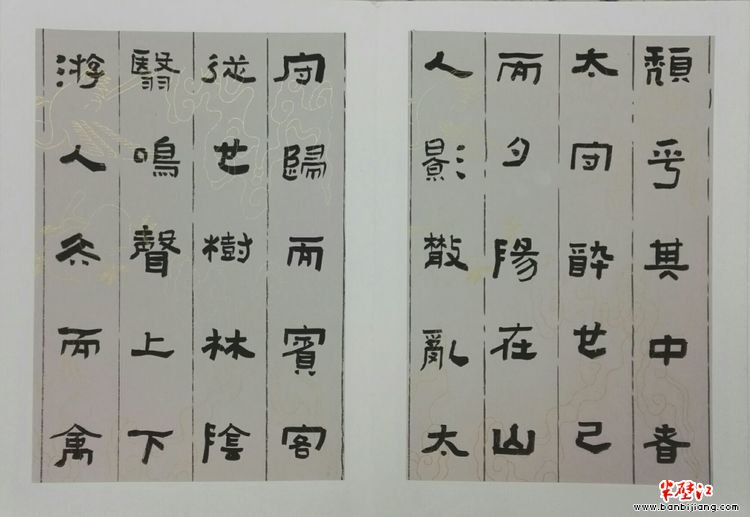 頹乎其中者
太守醉也已
而夕陽在山
人影散亂太
守歸而賓客
從也樹林陰
翳鳴聲上下
游人去而禽
半壁江
www.banbijiang.com